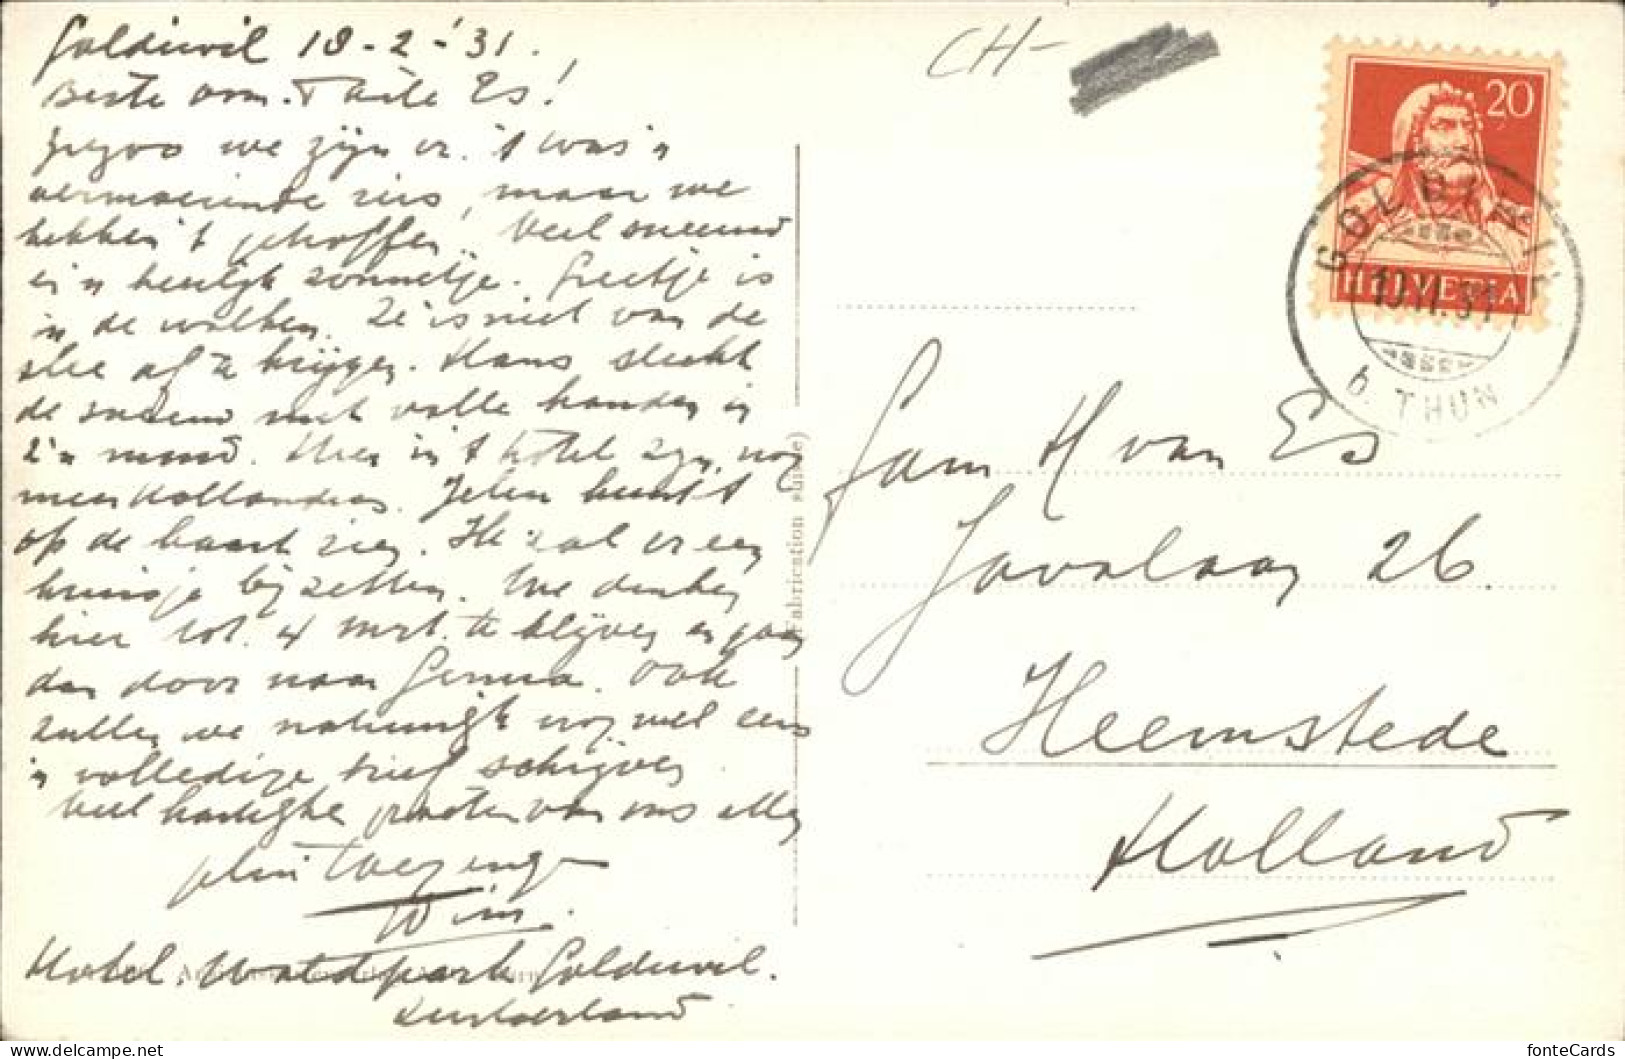 Goldiwil 10-2-'31.
Beste om. Tante Es!
we zijn er. 't was 'n
vermoeiende reis, maar we
hebben 't getroffen. Veel sneeuw
en 'n heerlijk zonnetje. Greetje is
in de wolken. Ze is niet van de
slee af te krijgen. Hans slecht
de sneeuw met volle handen in
z'n mond. Hier in 't hotel zijn nog
meer Hollanders. Jelui kunt 't
op de kaart zien. Ik zal er een
kruisje bij zetten. We denken
hier tot 4 Mrt. te blijven en gaan
dan door naar Genua. Ook
zullen we natuurlijk nog wel eens
'n volledige brief schrijven
Veel hartelijke groeten van ons allen
Wim.
Hotel Waldpark Goldiwil.
Zwitserland
Fabrication suisse)
CH-
20
HELVETIA
GOLDIWIL
10.II.31
b. THUN
Fam H van Es
Javalaan 26
Heemstede
Holland
fonteCards
delcampe.net